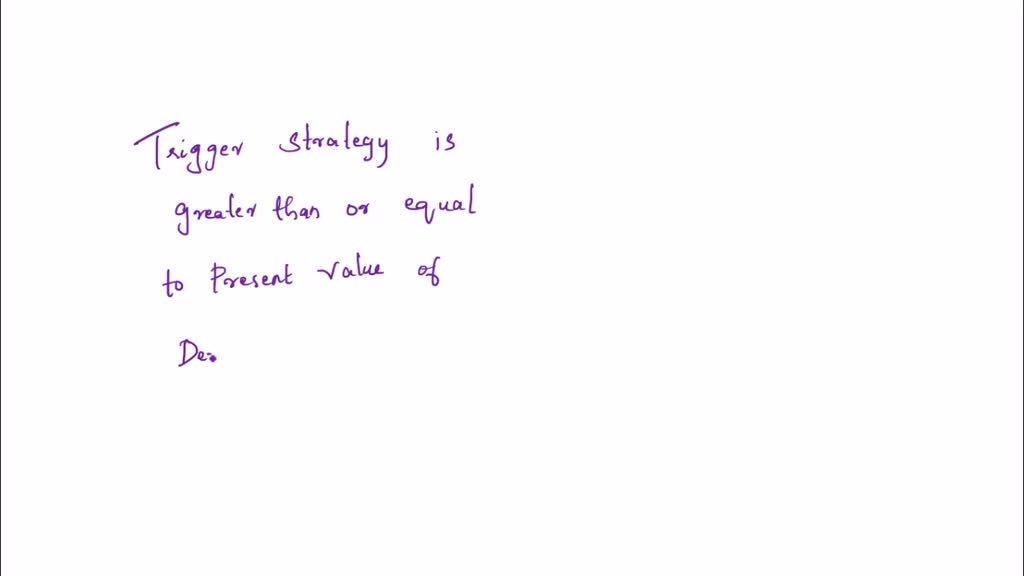 Trigger strategy is
greater than or equal
to Present value of
De